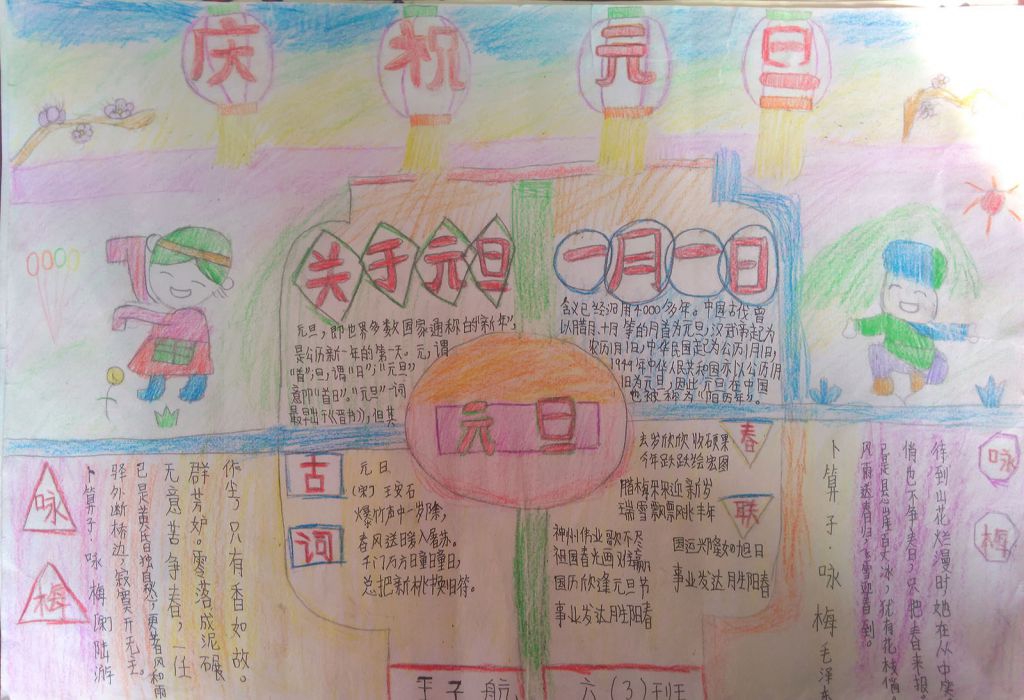 庆祝元旦
关于元旦
元旦，即世界多数国家通称的“新年”，
是公历新一年的第一天。元，谓
“首”，旦，谓“日”；“元旦”
意即“首日”。“元旦”一词
最早出于《晋书》，但其
一月一日
含义已经沿用4000多年。中国古代曾
以腊月、十月等的月首为元旦，汉武帝起为
农历1月1日，中华民国起为公历1月1日，
1949年中华人民共和国亦以公历1月
1日为元旦，因此元旦在中国
也被称为“阳历年”。
元旦
古词
元日
(宋) 王安石
爆竹声中一岁除，
春风送日暖入屠苏。
千门万户日曈日曈日，
总把新桃换旧符。
春联
去岁欣欣收硕果
今年跃跃绘宏图
瑞雪飘飘兆丰年
神州伟业歌不尽
国历欣逢元旦节
事业发达月胜阳春
事业发达月生阳春
咏梅
卜算子·咏梅 (宋)陆游
驿外断桥边，寂寞开无主。
已是黄昏独自愁，更著风和雨
无意苦争春，一任
群芳妒。零落成泥碾
作尘，只有香如故。
咏梅
卜算子·咏梅 毛泽
风雨送春归，飞雪迎春到。
已是悬崖百丈冰，犹有花枝俏
俏也不争春，只把春来报
待到山花烂漫时她在从中
王子航
六(3)班